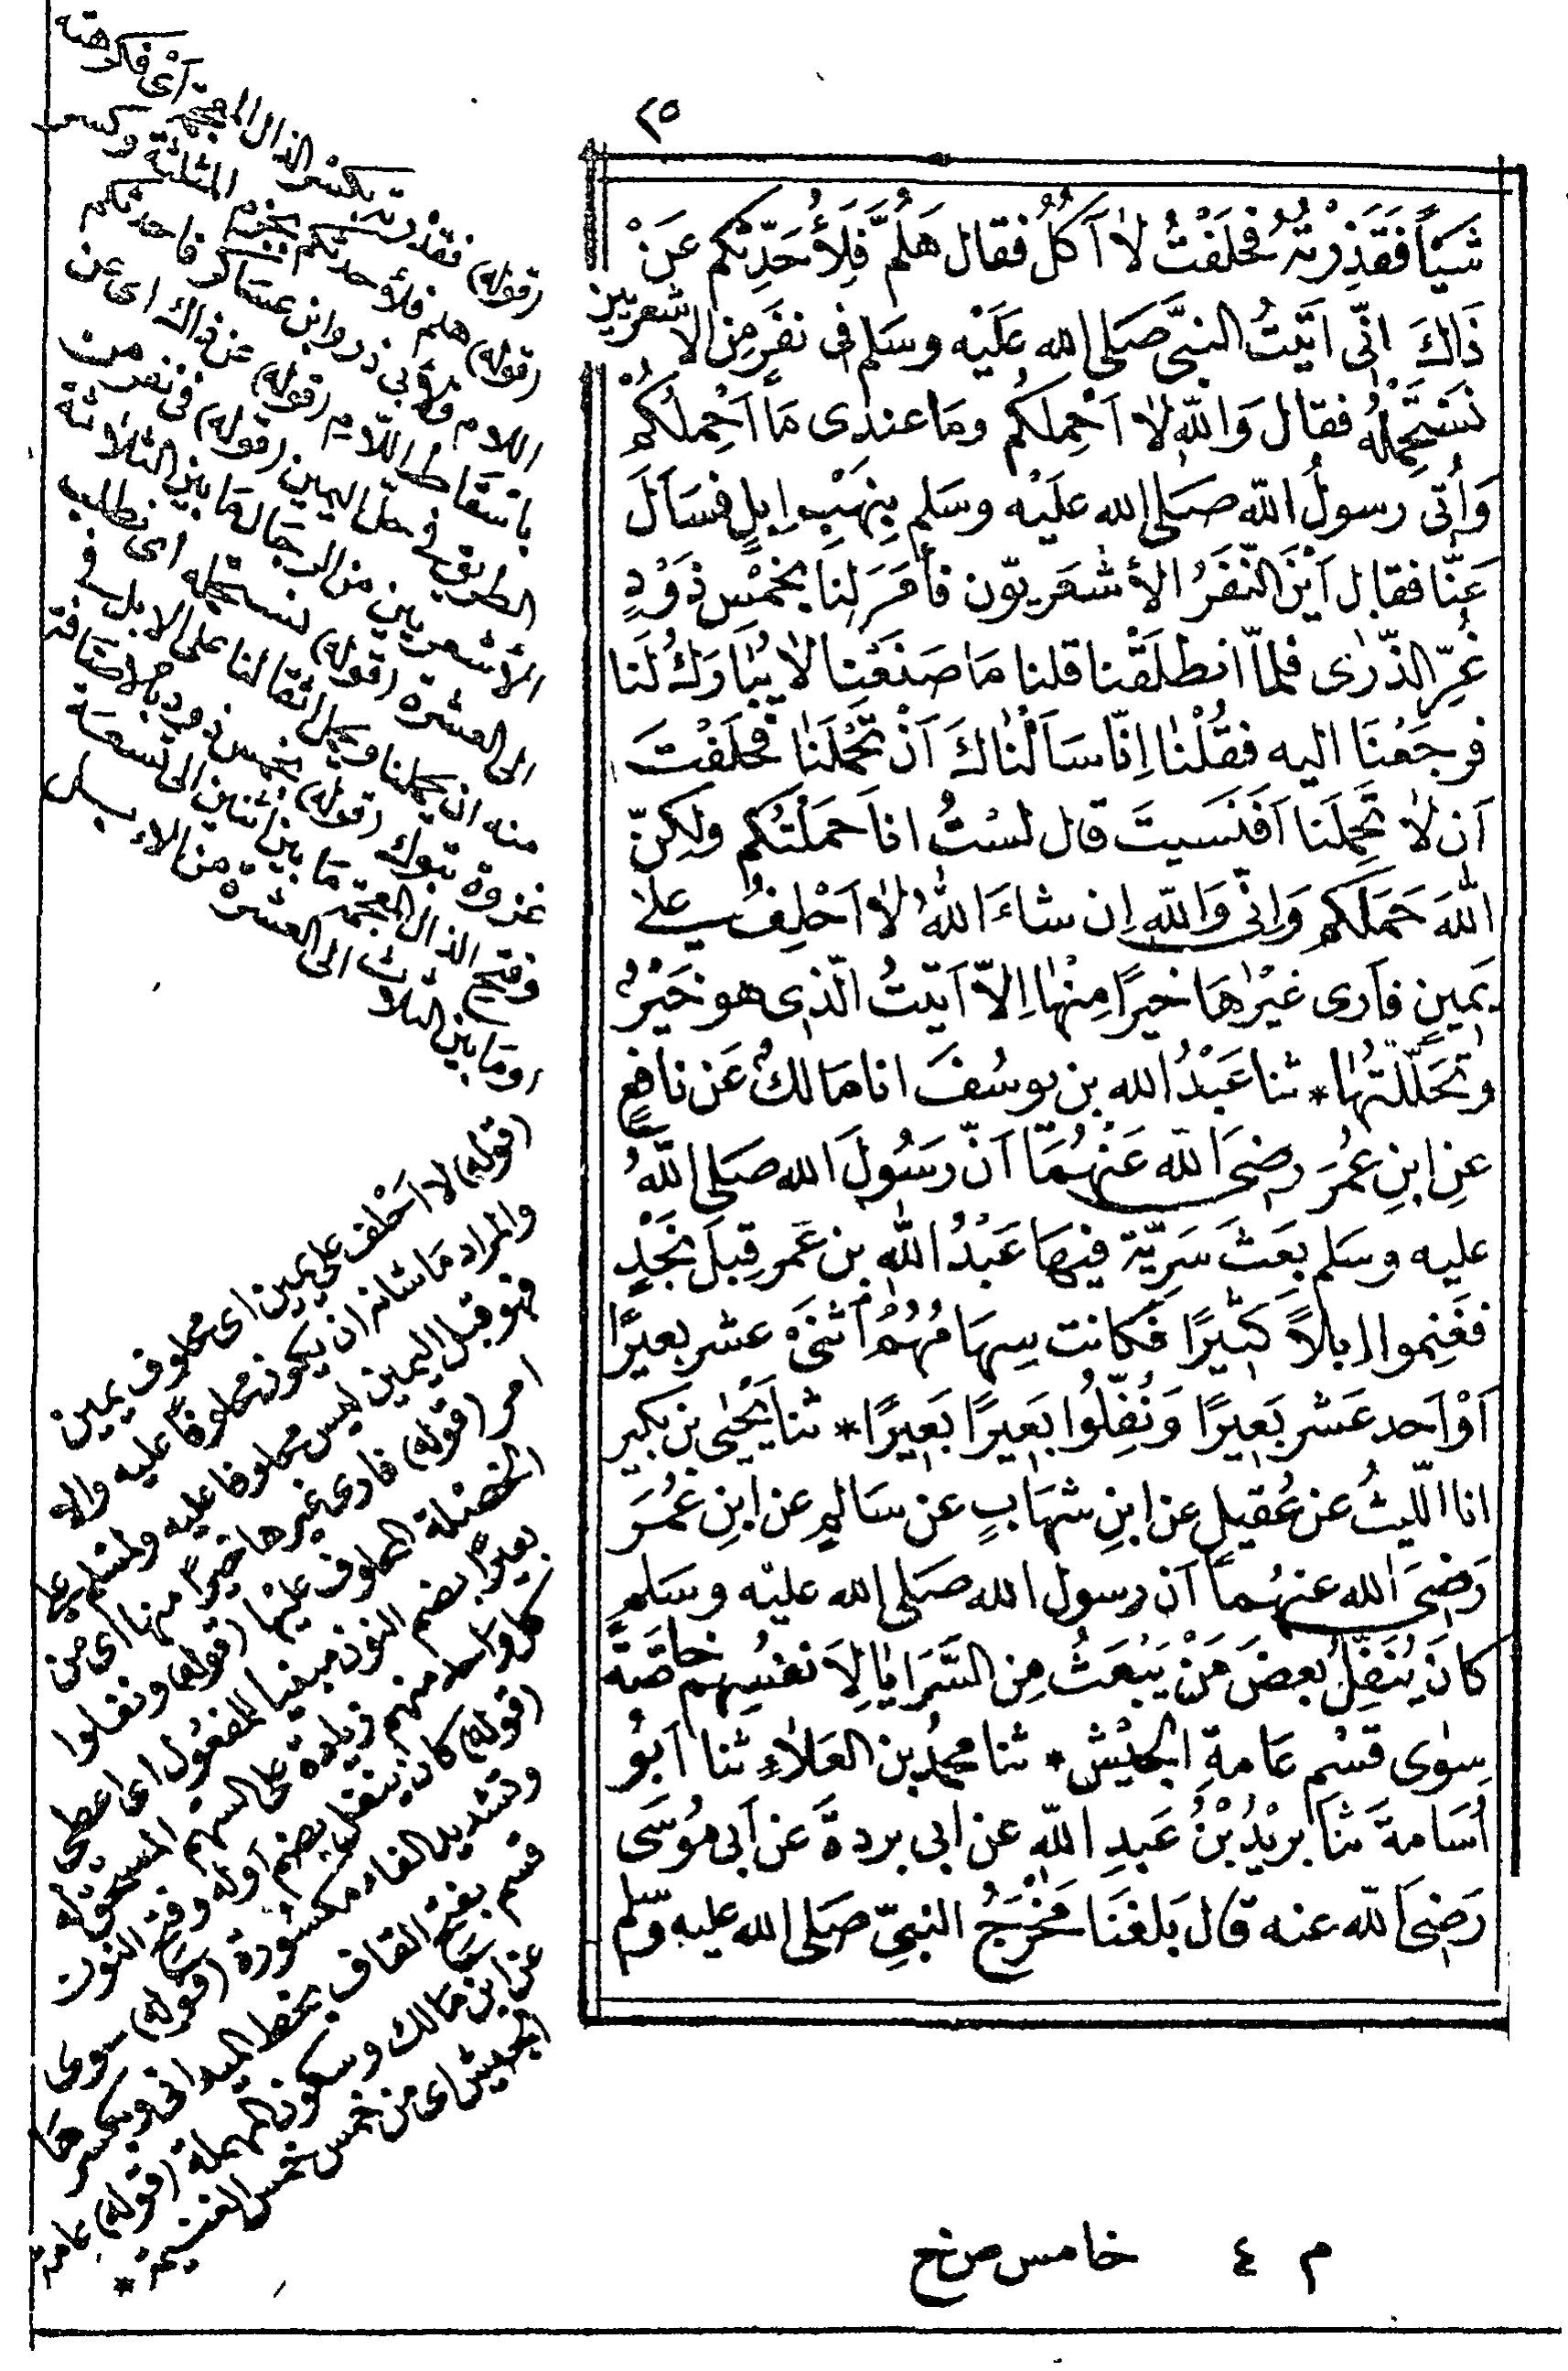 ٢٥
شَيْأً فَقَذِرْتُهُ فَحَلَفْتُ لاَ آكُلُ فقال هَلُمَّ فَلِأُحَدِّثْكم عَنْ
ذَاكَ انِّى اَتَيْتُ النبىَّ صَلى الله عَلَيْه وسَلم فى نَفَرٍ مِن الاشعريين
نَسْتَحْمِلُهُ فقال وَاللّهِ لاَ اَحْمِلُكُم وَمَا عندِى مَا اَحْمِلُكُمْ
وَأُتِى رسولُ اللّه صَلى الله علَيْه وسَلم بِنَهْبِ اِبِلٍ فَسَأَلَ
عَنَّا فقال اَيْنَ النَّفَرُ الأشعَريّون فأَمَرَ لنَا بخَمْسِ ذَوْدٍ
غُرِّ الذّرَى فلمّا انطلَقْنا قلنا مَا صَنَعْنَا لاَ يُبَارَكُ لَنا
فرجَعْنَا اليه فقُلْنَا اِنّا سَأَلْنَاكَ اَنْ تَحْمِلَنَا فَحَلَفْتَ
اَن لاَ تَحْمِلَنَا اَفَنَسِيتَ قال لَسْتُ انا حَمَلْتُكم ولَكِنّ
اللّهَ حَمَلَكم وَاِنِّى وَاللّهِ اِن شاءَ اللّهُ لاَ اَحْلِفُ عَلَى
يَمينٍ فَأَرى غيْرَهَا خيرًا مِنْهَا اِلاّ اَتَيْتُ الّذِى هو خَيْرٌ
وتَحَلّلْتُهَا * ثنا عَبْدُ الله بن يوسُفَ انا مَالكٌ عَن نافِعٍ
عنِ ابنِ عُمَرَ رضىَ اللّه عَنْهُمَا اَنّ رَسُولَ الله صَلى اللّهُ
عليه وسَلم بعَثَ سَرِيّةً فيهَا عَبْدُ اللّهِ بن عُمَر قِبَلَ نَجْدٍ
فغَنِموا اِبلاً كَثيرًا فَكانت سِهَامُهُمْ اثنَىْ عشر بعيرًا
اَوْ اَحد عَشر بَعِيرًا وَنُفِّلُوا بَعيرًا بَعِيرًا * ثنا يَحْيَى بن بكير
انا اللّيثُ عن عُقيلٍ عن ابنِ شهَابٍ عن سَالمٍ عن ابنِ عُمَرَ
رَضىَ الله عنهُمَا اَن رسول الله صَلى الله عليْه وسَلم
كانَ يُنَفِّلُ بعضَ مَنْ يَبْعَثُ مِن السَّرَايَا لِأَنفُسِهم خاصَّة
سِوَى قَسْمِ عَامةِ الجَيْش * ثنا محمدُ بن العَلاَءِ ثنا اَبُو
اُسَامةَ ثنا بُرَيْدُ بْنُ عَبدِ اللّهِ عن ابى بردةَ عَن اَبى مُوسَى
رَضىَ اللّه عنه قال بَلغَنَا مَخْرَجُ النبىِّ صَلى الله عليه وسلم
(قوله) فقذرته بكسر الذال المعجمة أى فكرهته
(قوله) هلم فلأحدثكم بجزم المثلثة وكسر
اللام ولأبى ذر وابن عساكر فأحدثكم
باسقاط اللام (قوله) عن ذاك اى عن
الطريق فى حل اليمين (قوله) فى نفر من
الأشعريين من الرجال ما بين الثلاثة
الى العشرة (قوله) نستحمله اى نطلب
منه ان يحملنا ويحمل اثقالنا على الابل فى
غزوة تبوك (قوله) بخمس ذود بالاضافة
وفتح الذال المعجمة ما بين اثنين الى تسعة
او ما بين الثلاث الى العشرة من الابل
(قوله) لا احلف على يمين اى محلوف يمين
والمراد ما شانه ان يكون محلوفًا عليه والا
فهو قبل اليمين ليس محلوفا عليه ولمسلم على
امر (قوله) فارى غيرها خيرًا منها اى من
الخصلة المحلوف عليها (قوله) ونفلوا
بعيرًا بضم النون مبنيا للمفعول اى اعطى
كل واحد منهم زيادة على السهم المستحق له
(قوله) كان ينفل بضم اوله وفتح النون
وتشديد الفاء مكسورة (قوله) سوى
قسم بفتح القاف بخط الميدانى وبكسرها
عن ابن مالك وسكون المهملة (قوله) عامة
الجيش اى من خمس خمس الغنيمة *
م ٤ خامس ص نح